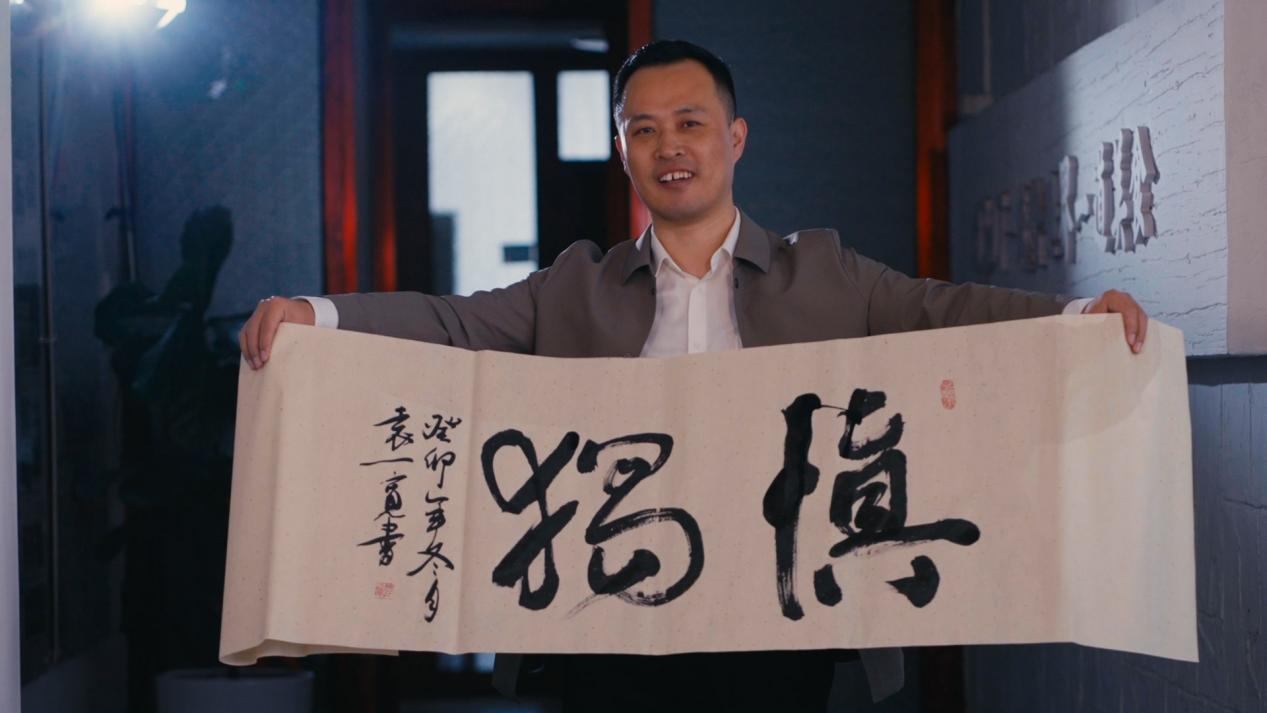 慎獨
癸卯年冬月
袁一亮書